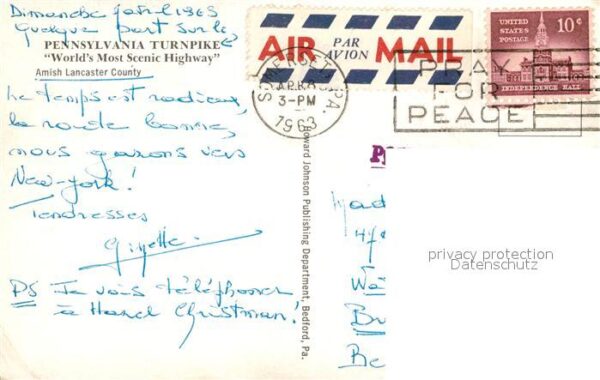 Dimanche 7 avril 1963
Quelque part sur le
PENNSYLVANIA TURNPIKE
"World's Most Scenic Highway"
Amish Lancaster County
Le temps est radieux,
la route bonne,
nous gazons vers
New-york!
Tendresses
Ginette
PS Je vais téléphoner
à Hazel Christman!
AIR PAR AVION MAIL
UNITED STATES POSTAGE 10¢
INDEPENDENCE HALL
SOMERSET, PA.
APR
3-PM
1963
PRAY
FOR
PEACE
Howard Johnson Publishing Department, Bedford, Pa.
P
Mad
47
Wa
Br
Be
privacy protection
Datenschutz